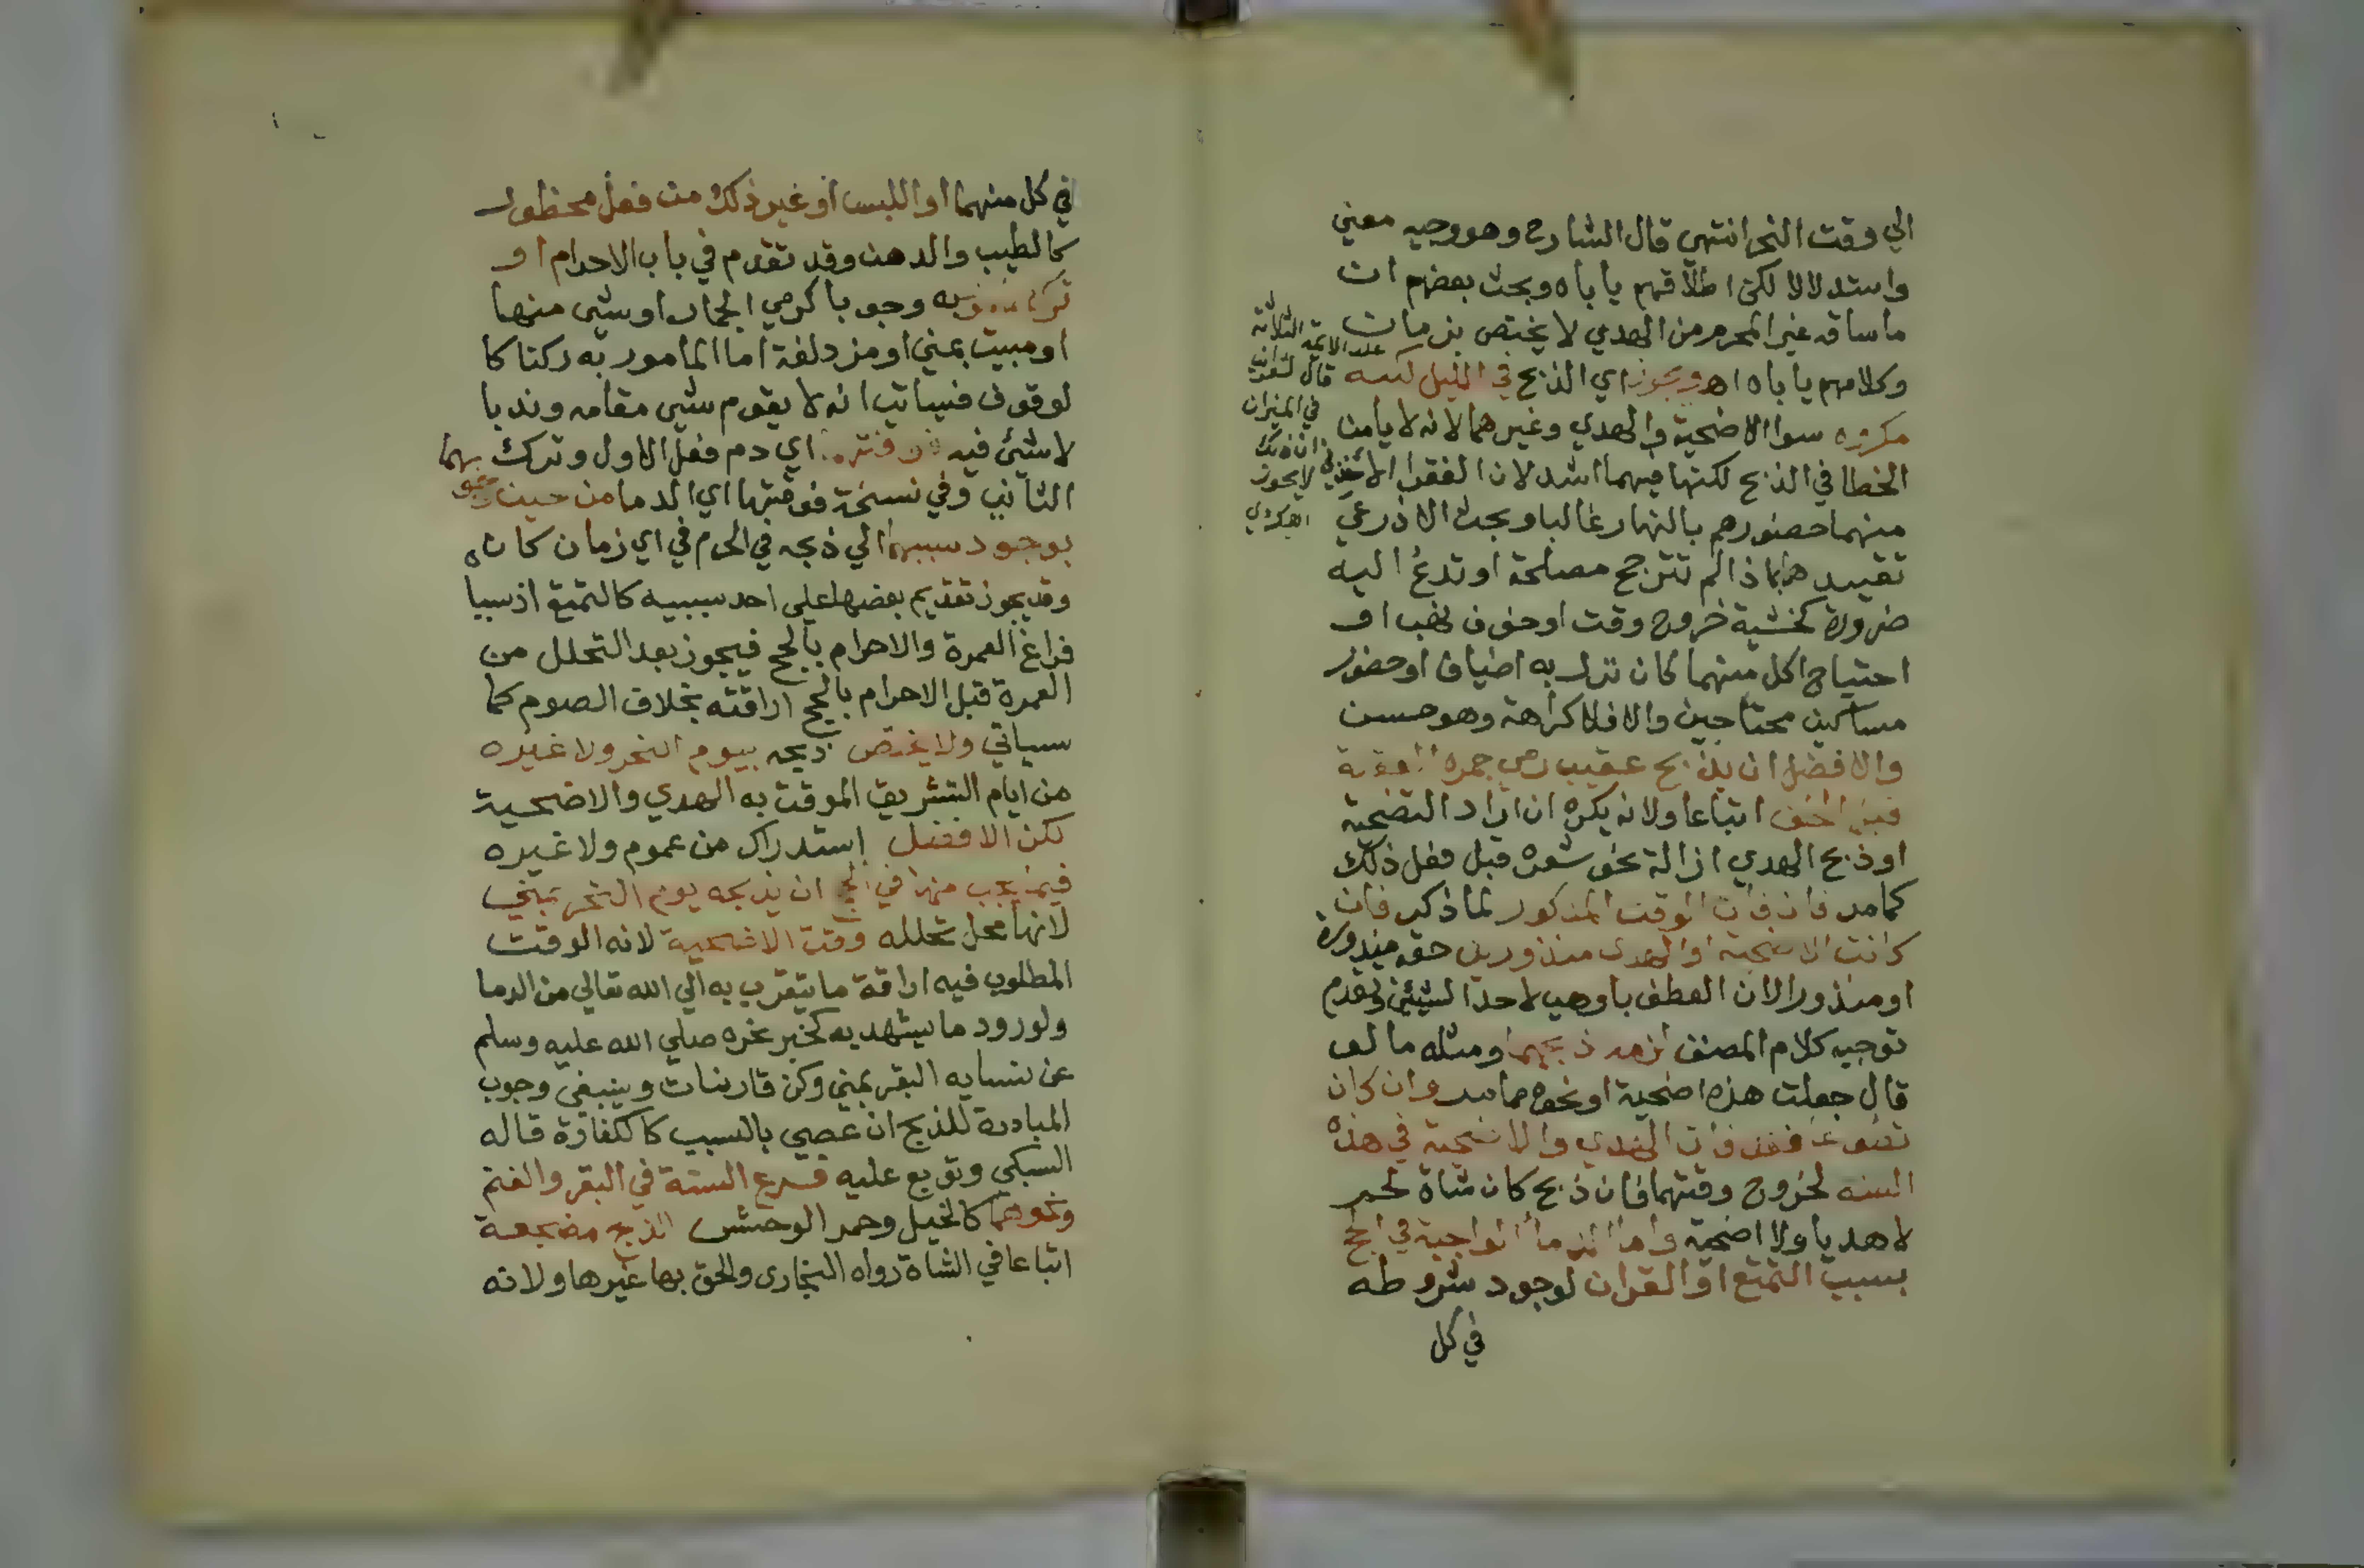 الي وقت النحر انتهي قال الشارح وهو وجيه معني
واستدلالا لكن اطلاقهم ياباه وبحث بعضهم ان
ما ساقه غير المحرم من الهدي لا يختص بزمان
وكلامهم ياباه اهـ ويجوز اي الذبح في الليل لكنه
مكروه سوا الاضحية والهدي وغيرهما لانه لا يامن
الخطا في الذبح لكنها فيهما اشد لان الفقرا
منهما حضورهم بالنهار غالبا وبحث الاذرعي
تقييدهما بما اذا لم تترجح مصلحة او تدع اليه
ضرورة كخشية خروج وقت او خوف نهب او
احتياج اكل منهما كان نزل به اضياف او حضور
مساكين محتاجين والا فلا كراهة وهو حسن
والافضل ان يذبح عقيب رمي جمرة العقبة
قبل الحلق اتباعا ولانه يكره ان اراد التضحية
او ذبح الهدي ازالة نحو شعره قبل فعل ذلك
كما مر فان فات الوقت المذكور لما ذكر فان
كانت الاضحية او الهدي منذورين حقه منذورة
او منذورا لان العطف باو هي لاحد الشيئين وتقدم
توجيه كلام المصنف لزمه ذبحهما ومثله ما لو
قال جعلت هذه اضحية او نحوه مما مر وان كان
تطوعا فقد فات الهدي والاضحية في هذه
السنه لخروج وقتهما فان ذبح كان شاة لحم
لا هديا ولا اضحية واما الدماء الواجبة في الحج
بسبب التمتع او القران لوجود شروطه
في كل
عند الايمة الثلاثة
قال
في الميزان
ان ذلك
لا يجوز
اهـ كردي
في كل منهما او اللبس او غير ذلك من فعل محظور
كالطيب والدهن وقد تقدم في باب الاحرام او
ترك مامور به وجوبا كرمي الجمار او شي منها
او مبيت بمني او مزدلفة اما المامور به ركنا كا
لوقوف فسياتي انه لا يقوم شي مقامه وندبا
لا شيئ فيه فوقته اي دم فعل الاول وترك
الثاني وفي نسخة فوقتها اي الدما من حين وجوبهما
بوجود سببهما الي ذبحه في الحرم في اي زمان كان
وقد يجوز تقديم بعضها علي احد سببيه كالتمتع اذ سببا
فراغ العمرة والاحرام بالحج فيجوز بعد التحلل من
العمرة قبل الاحرام بالحج اراقته بخلاف الصوم كما
سياتي ولا يختص ذبحه بيوم النحر ولا غيره
من ايام التشريق الموقت به الهدي والاضحية
لكن الافضل استدراك من عموم ولا غيره
فيما يجب منها في الحج ان يذبحه يوم النحر بمني
لانها محل تحلله وقت الاضحية لانه الوقت
المطلوب فيه اراقة ما يتقرب به الي الله تعالي من الدما
ولورود ما يشهد به كخبر نحره صلي الله عليه وسلم
عن نسايه البقر بمني وكن قارنات وينبغي وجوب
المبادرة للذبح ان عصي بالسبب كالكفارة قاله
السبكي وتوبع عليه فرع السنة في البقر والغنم
ونحوهما كالخيل وحمر الوحش الذبح مضجعة
اتباعا في الشاة رواه البخاري والحق بها غيرها ولانه